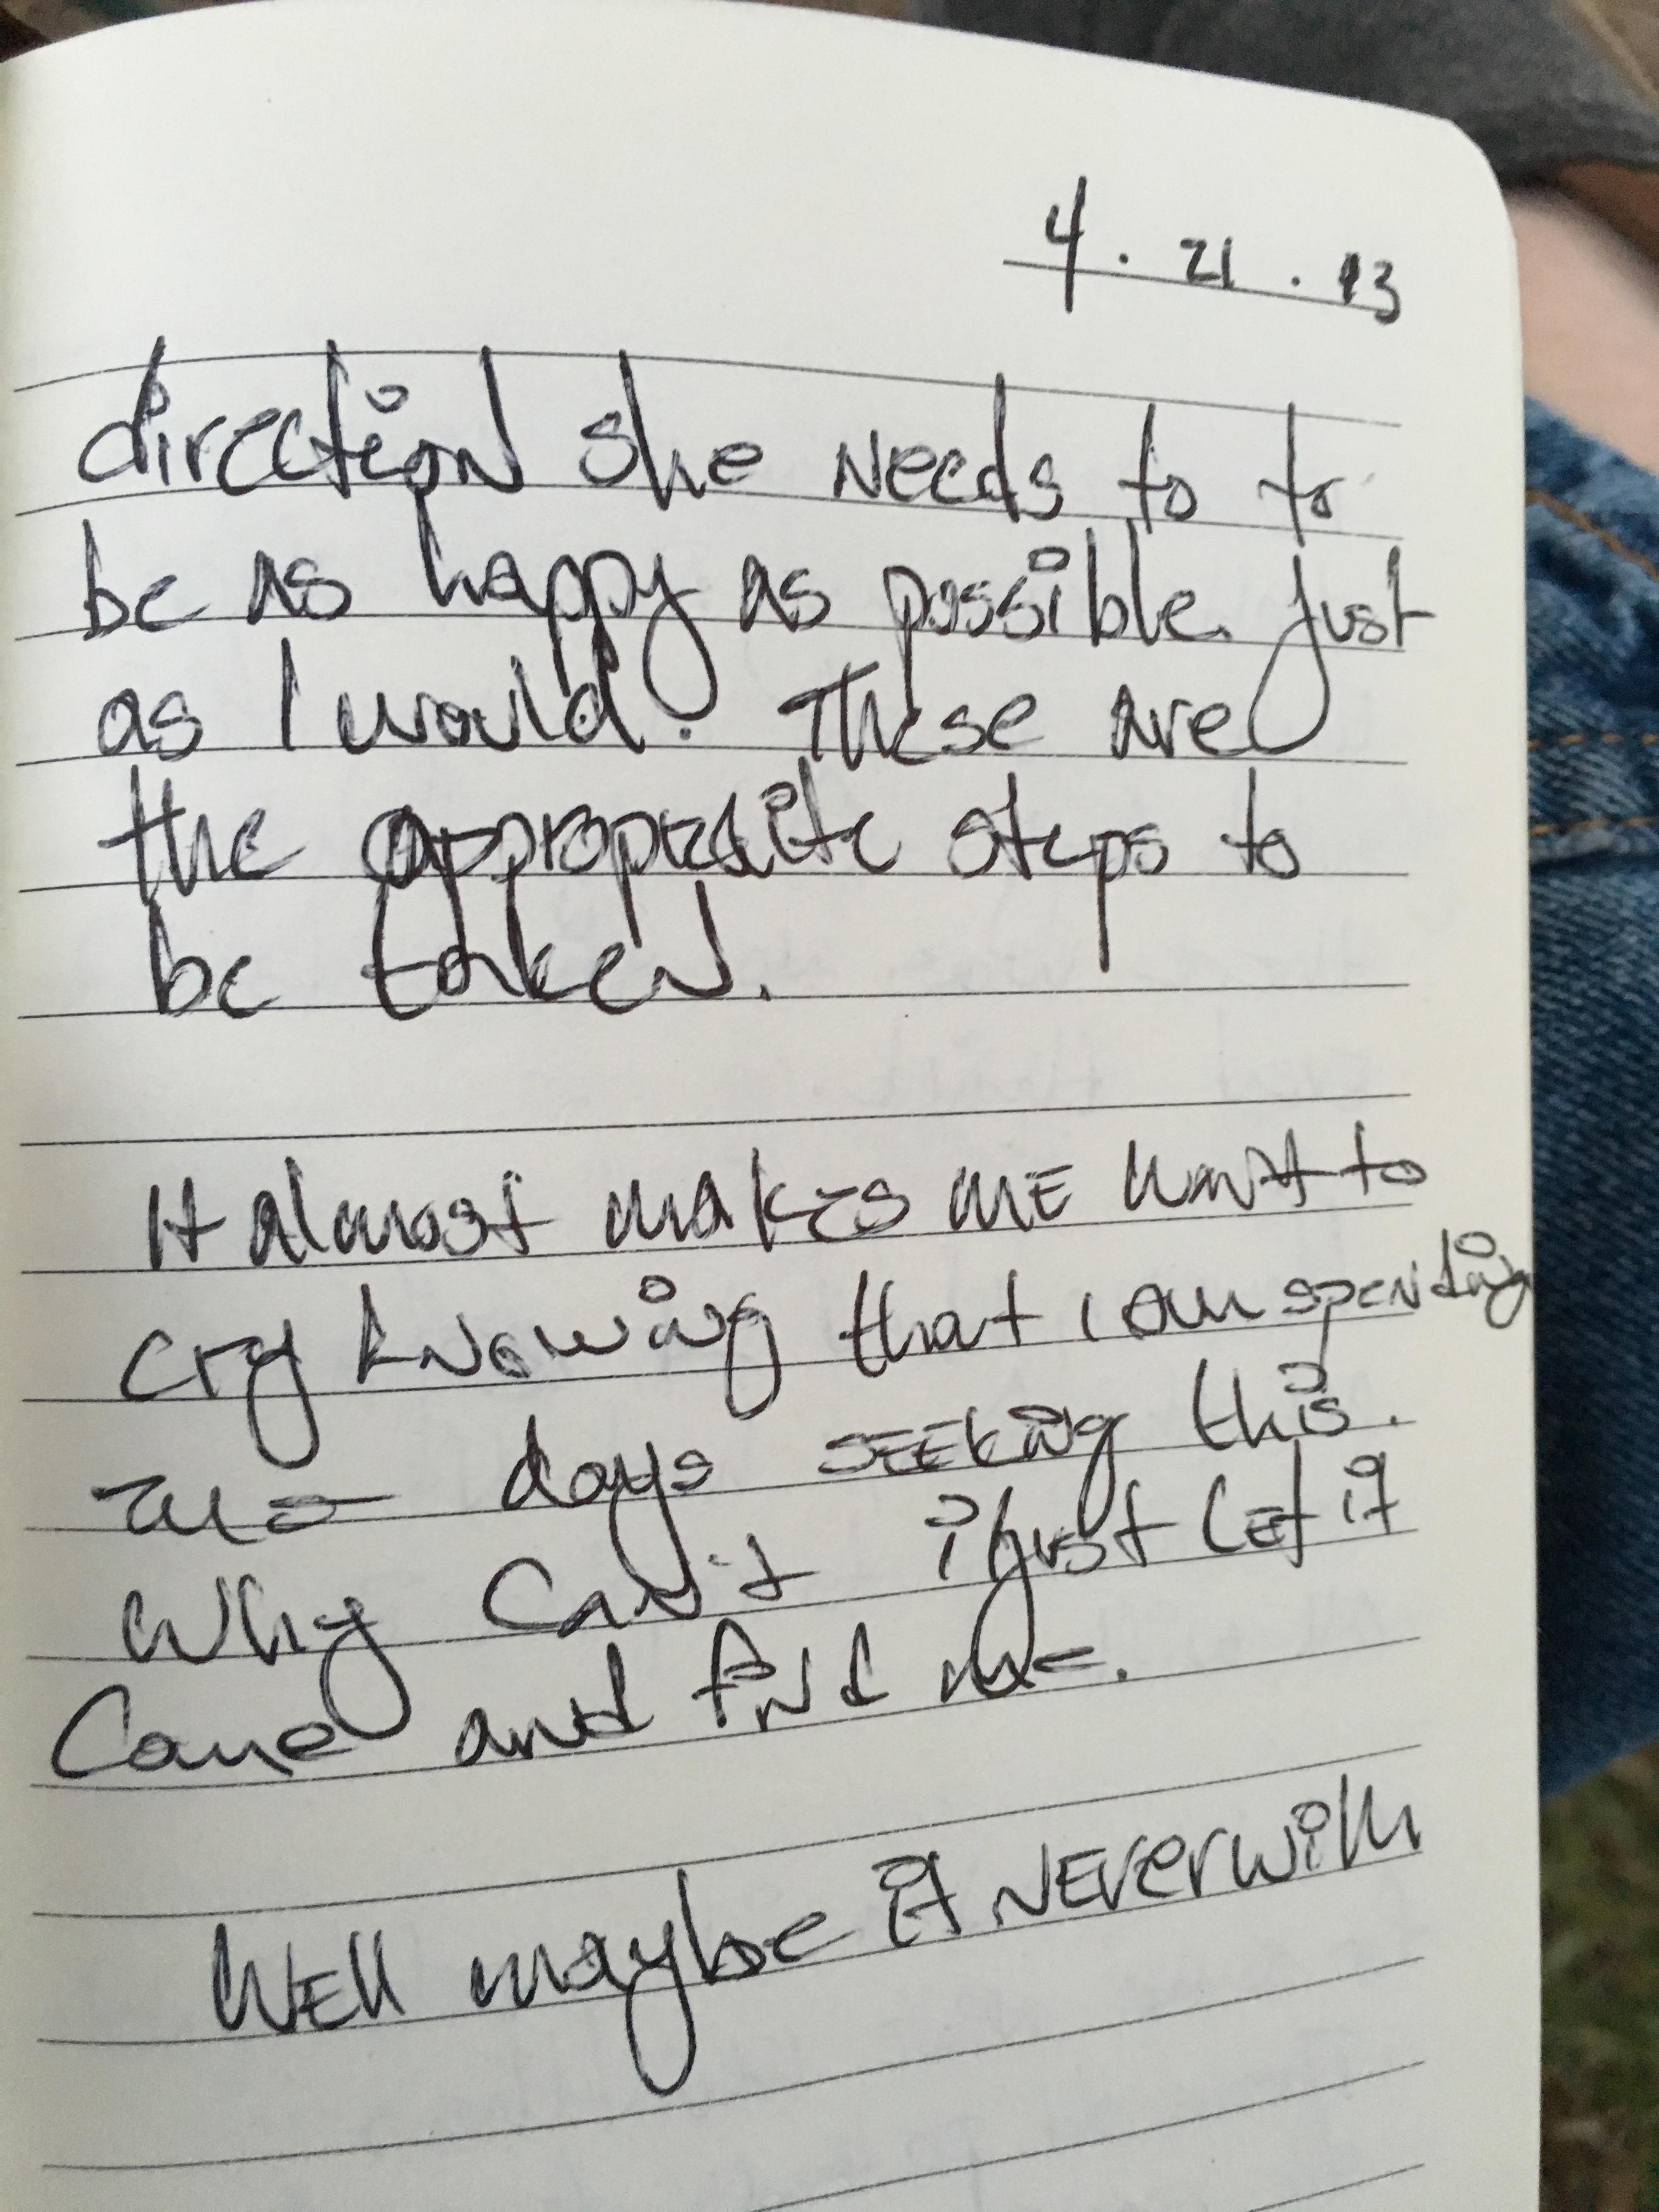 4 . 21 . 13
direction she needs to to
be as happy as possible. Just
as I would. These are
the appropriate steps to
be taken.
It almost makes me want to
cry knowing that i am spending
days seeking this.
Why can't i just let it
Come and find me.
Well maybe it never will